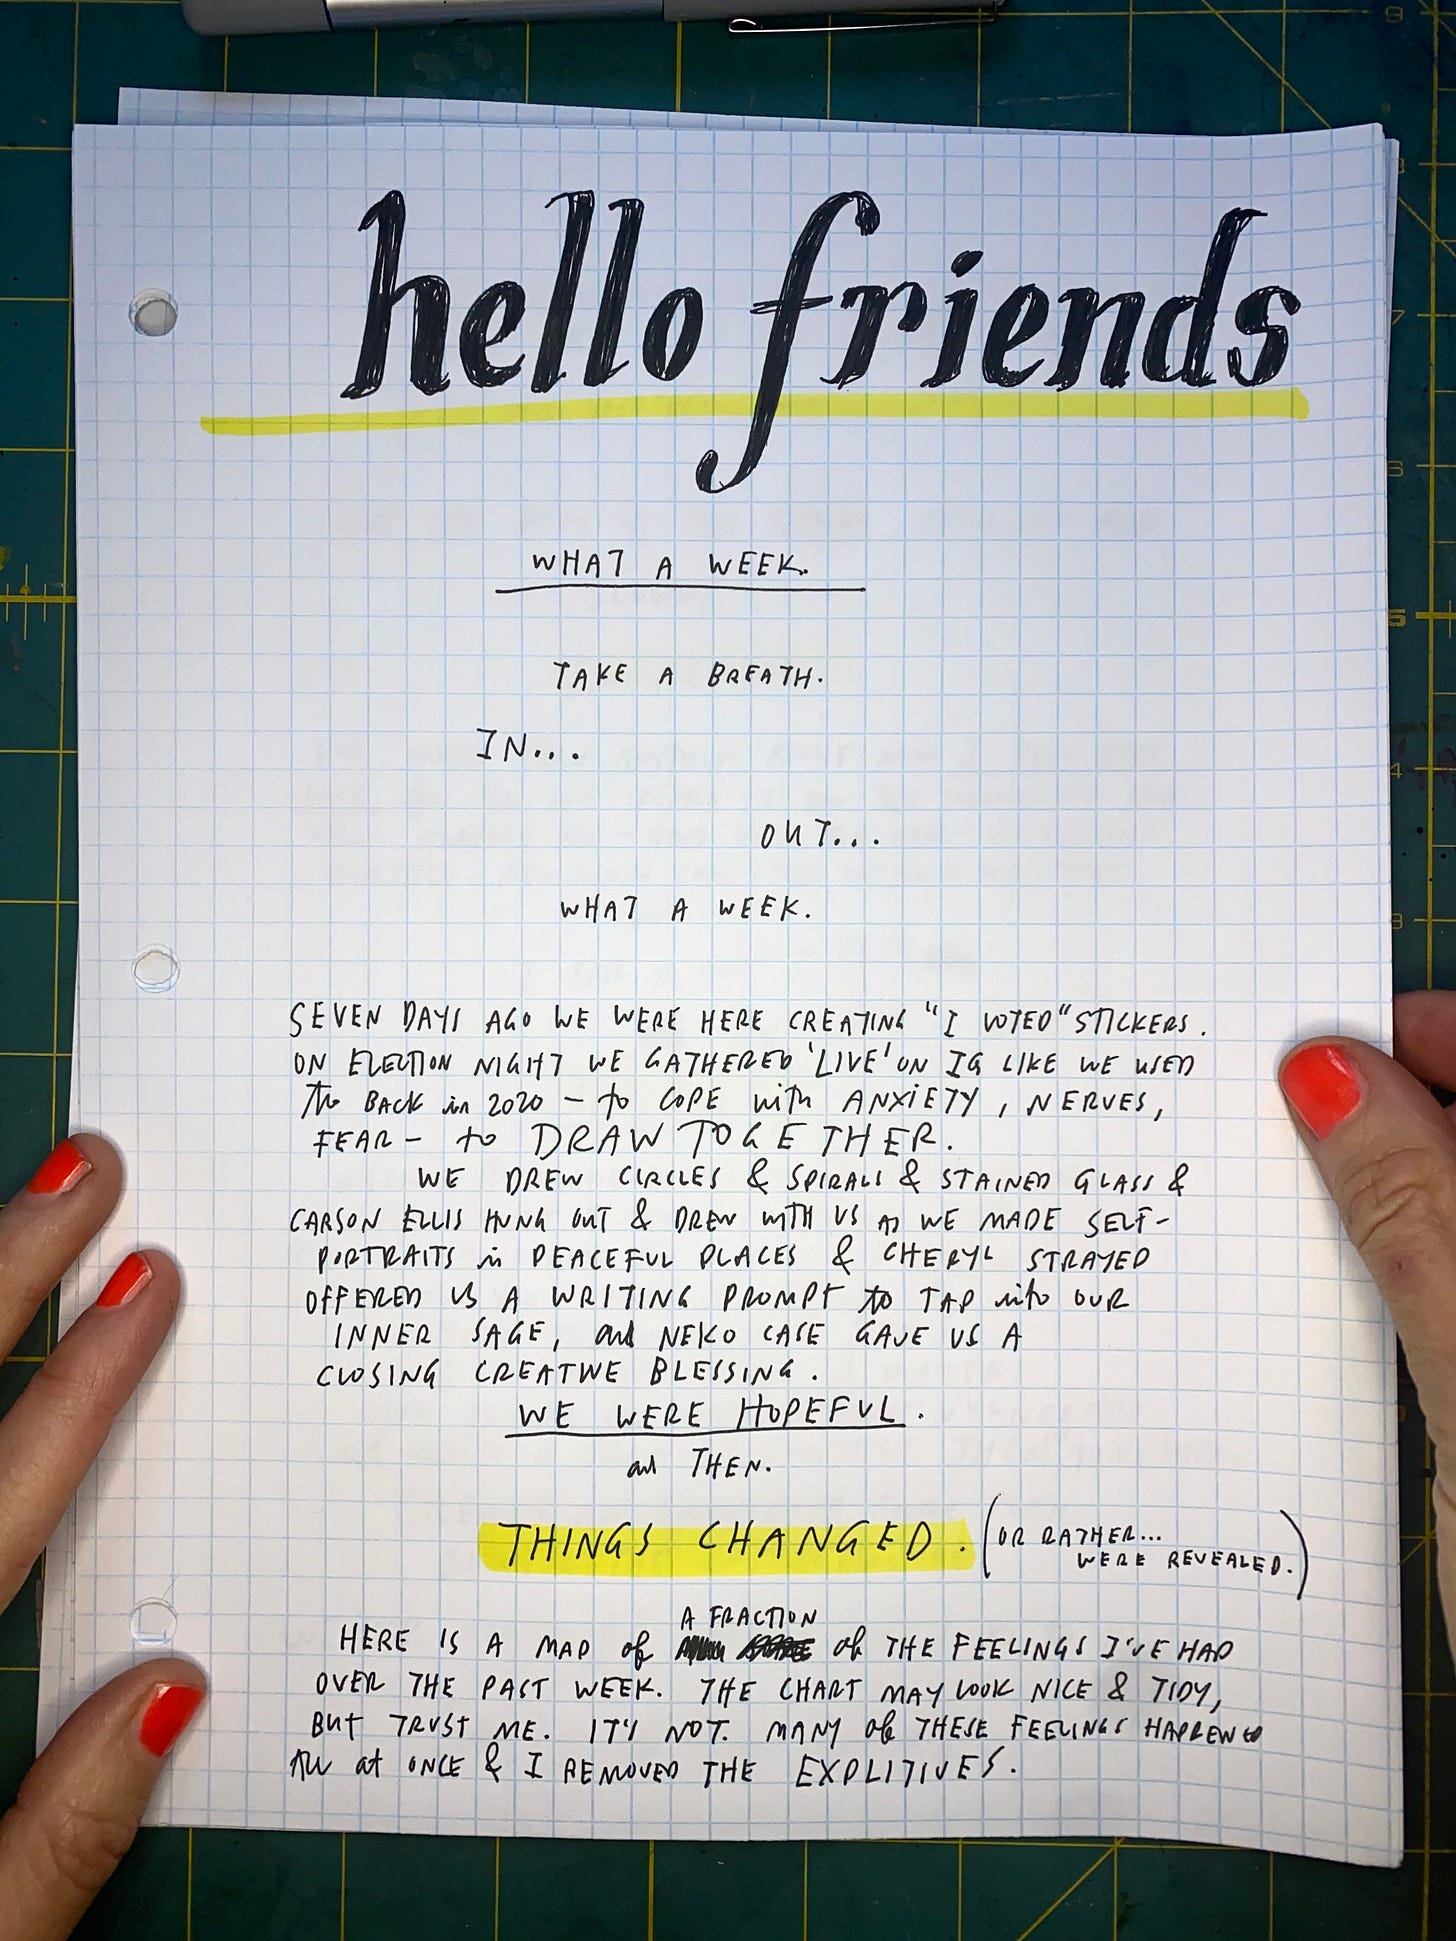 hello friends
WHAT A WEEK.
TAKE A BREATH.
IN...
OUT...
WHAT A WEEK.
SEVEN DAYS AGO WE WERE HERE CREATING "I VOTED" STICKERS.
ON ELECTION NIGHT WE GATHERED 'LIVE' ON IG LIKE WE USED
to BACK in 2020 — to COPE with ANXIETY, NERVES,
FEAR — to DRAW TOGETHER.
WE DREW CIRCLES & SPIRALS & STAINED GLASS &
CARSON ELLIS HUNG OUT & DREW WITH US AS WE MADE SELF-
PORTRAITS in PEACEFUL PLACES & CHERYL STRAYED
OFFERED US A WRITING PROMPT to TAP into OUR
INNER SAGE, and NEKO CASE GAVE US A
CLOSING CREATIVE BLESSING.
WE WERE HOPEFUL.
and THEN.
THINGS CHANGED. (OR RATHER...
WERE REVEALED.)
A FRACTION
HERE IS A MAP of of THE FEELINGS I'VE HAD
OVER THE PAST WEEK. THE CHART MAY LOOK NICE & TIDY,
BUT TRUST ME. IT'S NOT. MANY of THESE FEELINGS HAPPENED
ALL at ONCE & I REMOVED THE EXPLITIVES.
9
7
6
5
4
3